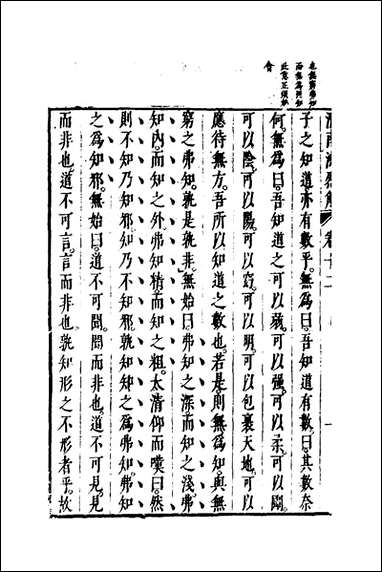 此意正須
會
淮南鴻烈解 卷十二 一
子之知道亦有數乎。無爲曰。吾知道有數。曰。其數奈
何。無爲曰。吾知道之可以弱。可以强。可以柔。可以剛。
可以陰。可以陽。可以窈。可以明。可以包裹天地。可以
應待無方。吾所以知道之數也。若是則無爲知與無
窮之弗知。孰是孰非。無始曰。弗知之深而知之淺。弗
知内而知之外。弗知精而知之粗。太清仰而嘆曰。然
則不知乃知邪。知乃不知邪。孰知知之爲弗知。弗知
之爲知邪。無始曰。道不可聞。聞而非也。道不可見。見
而非也。道不可言。言而非也。孰知形之不形者乎。故